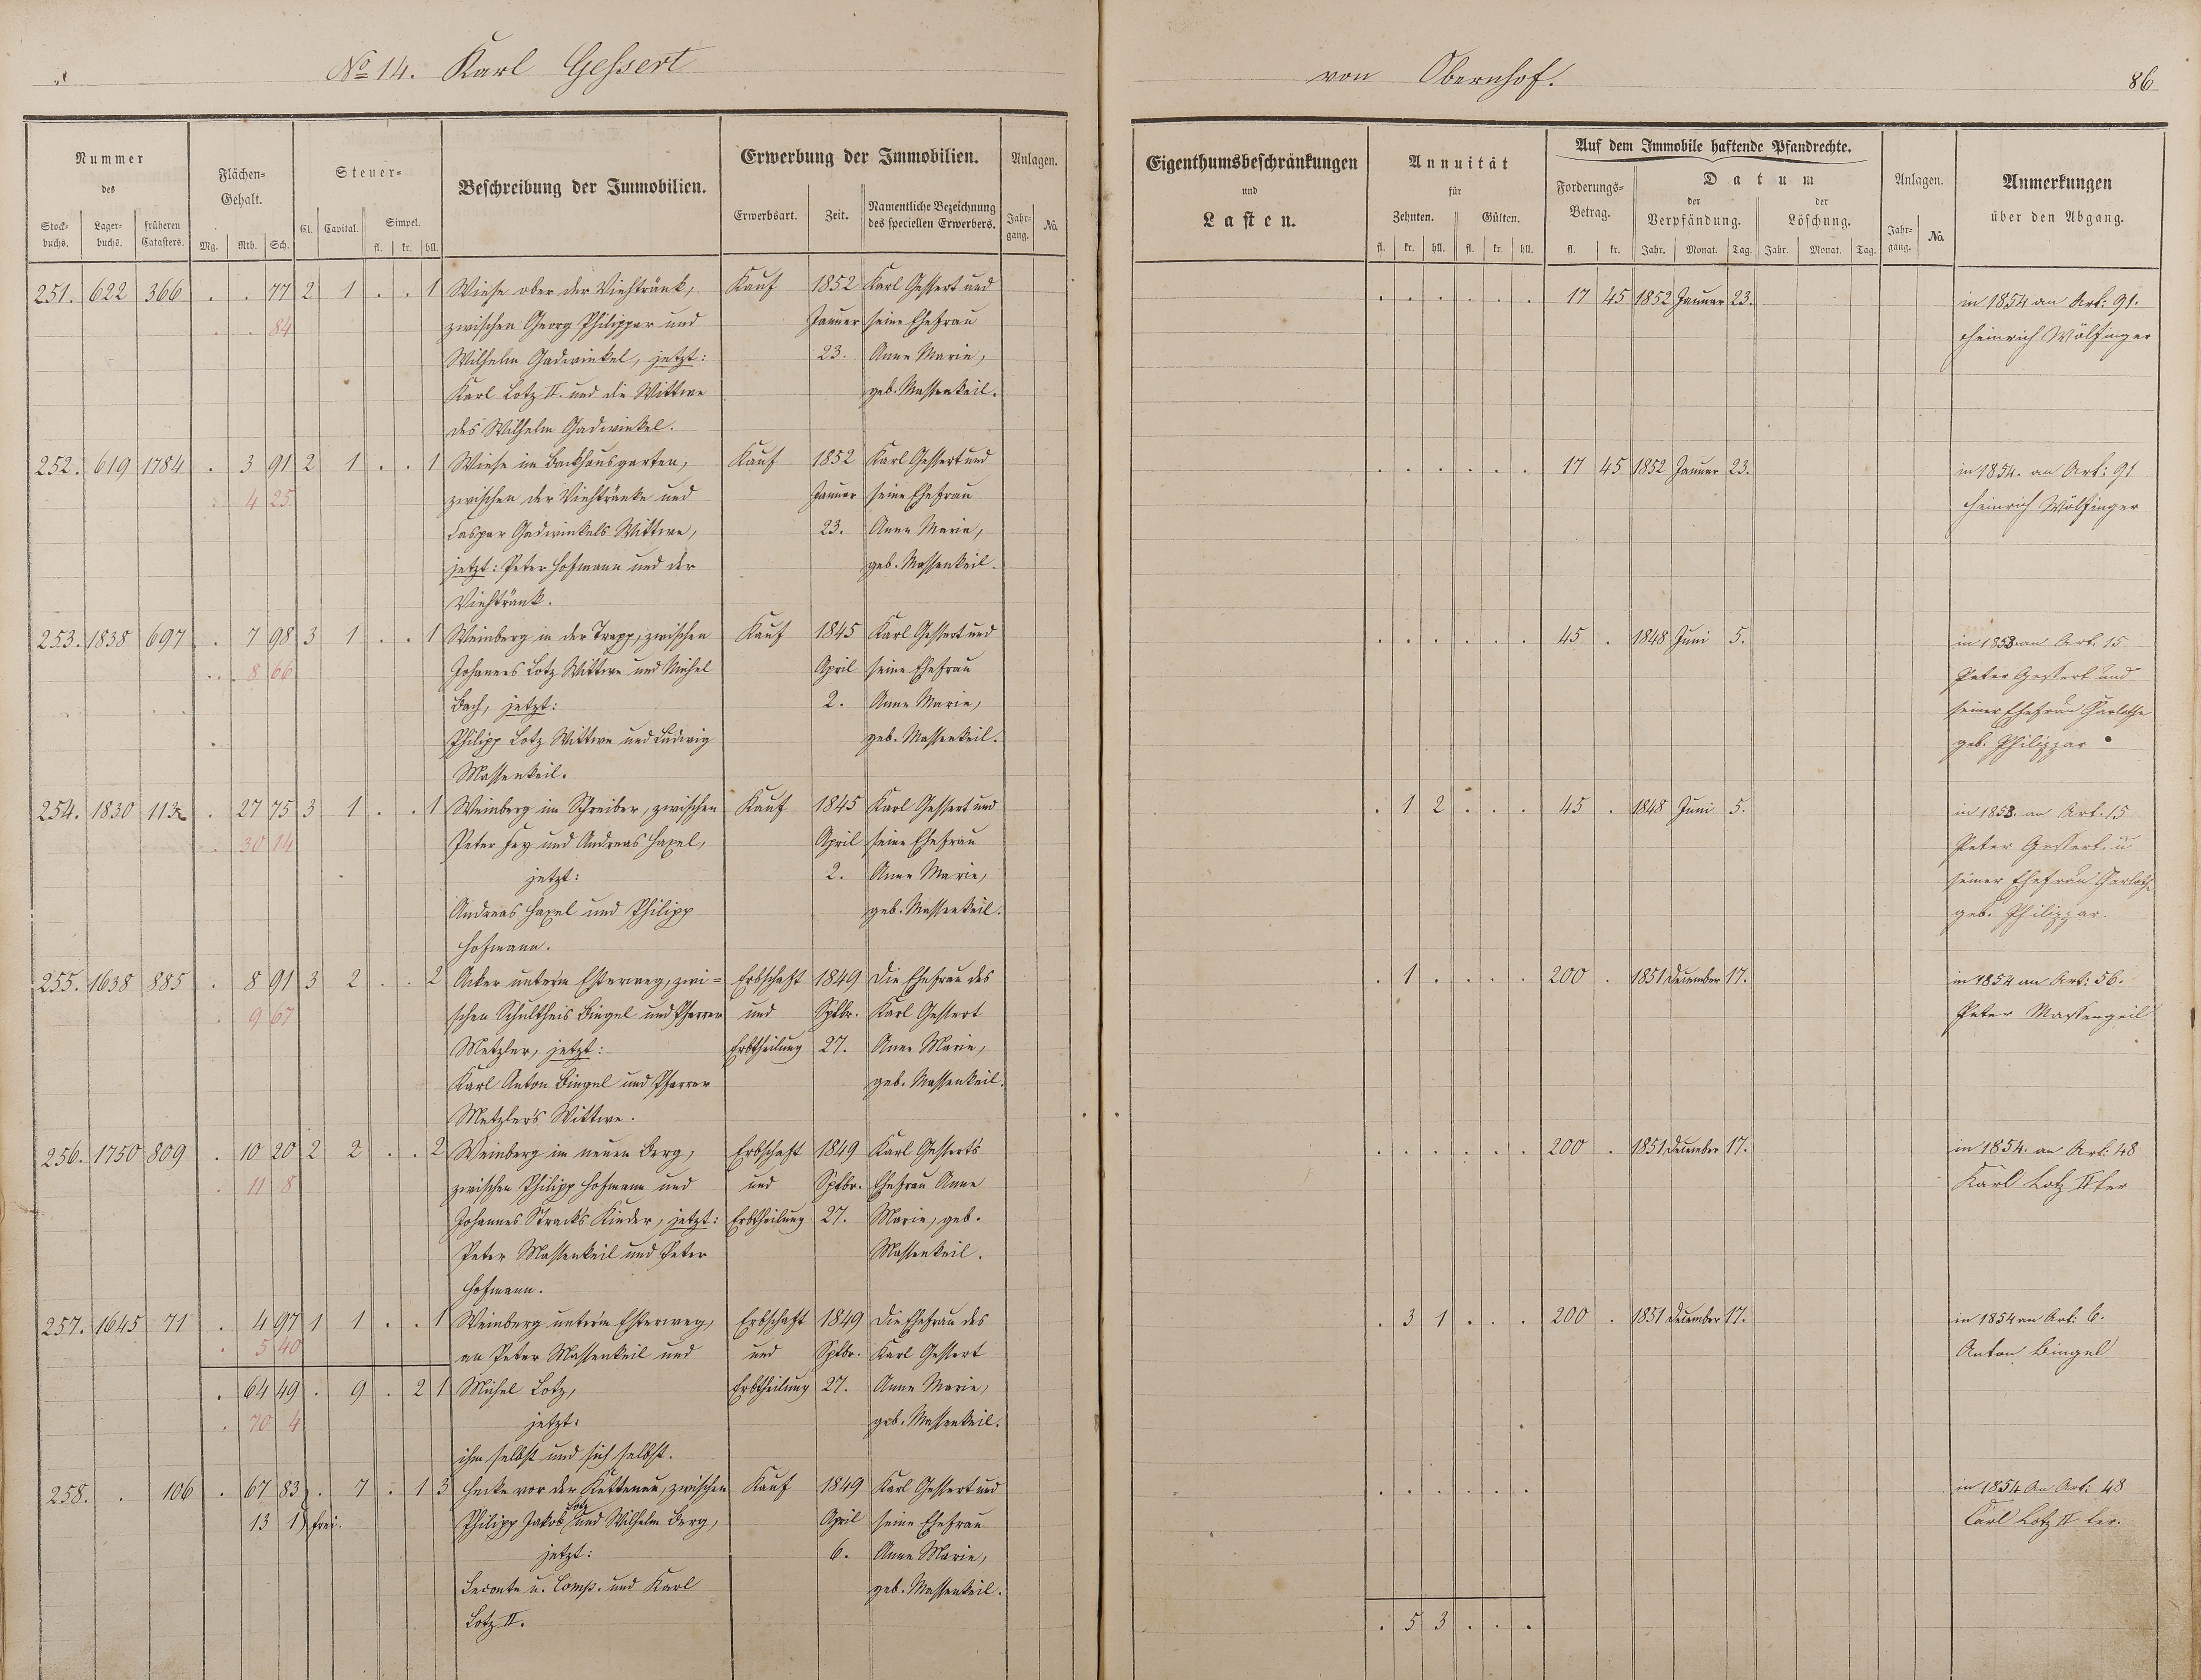 No 14. Karl Gessert
von Obernhof.
86
Nummer
des
Stock-buchs.
Lager-buchs.
früheren Catasters.
Flächen-Gehalt.
Mg. Rth. Sch.
Steuer-
Cl. Capital. Simpel.
fl. kr. hll.
Beschreibung der Immobilien.
Erwerbung der Immobilien.
Erwerbsart. Zeit. Namentliche Bezeichnung des speciellen Erwerbers.
Anlagen.
Jahr-gang. No.
Eigenthumsbeschränkungen
und
Lasten.
Annuität
für
Zehnten. Gülten.
fl. kr. hll. fl. kr. hll.
Auf dem Immobile haftende Pfandrechte.
Forderungs-Betrag.
fl. kr.
Datum
der Verpfändung. der Löschung.
Jahr. Monat. Tag. Jahr. Monat. Tag.
Anlagen.
Jahr-gang. No.
Anmerkungen
über den Abgang.
251. 622 366 . . 77 2 1 . . 1 Wiese ober der Viehtränk, Kauf 1852 Karl Gessert und
. . 84 zwischen Georg Philippar und Januar seine Ehefrau
Wilhelm Gadwinkel, jetzt: 23. Anne Marie,
Karl Lotz II. und die Wittwe geb. Massenkeil.
des Wilhelm Gadwinkel.
. . . . . . 17 45 1852 Januar 23. in 1854 an Art: 91.
Heinrich Wölfinger
252. 619 1784 . 3 91 2 1 . . 1 Wiese im Backhausgarten, Kauf 1852 Karl Gessert und
. 4 25 zwischen der Viehtränke und Januar seine Ehefrau
Caspar Gadwinkels Wittwe, 23. Anne Marie,
jetzt: Peter Hofmann und der geb. Massenkeil.
Viehtränk.
. . . . . . 17 45 1852 Januar 23. in 1854. an Art: 91
Heinrich Wölfinger
253. 1838 697 . 7 98 3 1 . . 1 Weinberg in der Trapp, zwischen Kauf 1845 Karl Gessert und
. 8 66 Johannes Lotz Wittwe und Michel April seine Ehefrau
Bach, jetzt: 2. Anne Marie,
Philipp Lotz Wittwe und Ludwig geb. Massenkeil.
Massenkeil.
. . . . . . 45 . 1848 Juni 5. in 1853 an Art. 15
Peter Gessert und
seiner Ehefrau Charlotte
geb. Philippar
254. 1830 113 . 27 75 3 1 . . 1 Weinberg im Schreiber, zwischen Kauf 1845 Karl Gessert und
. 30 14 Peter Fey und Andreas Haxel, April seine Ehefrau
jetzt: 2. Anne Marie,
Andreas Haxel und Philipp geb. Massenkeil.
Hofmann.
. 1 2 . . . 45 . 1848 Juni 5. in 1853. an Art. 15
Peter Gessert. u
seiner Ehefrau
geb. Philippar.
255. 1638 885 . 8 91 3 2 . . 2 Acker unterm Esterweg, zwi= Erbschaft 1849 Die Ehefrau des
. 9 67 schen Schultheis Bingel und Pfarrer und Sptbr. Karl Gessert
Metzler, jetzt: Erbtheilung 27. Anne Marie,
Karl Anton Bingel und Pfarrer geb. Massenkeil.
Metzler's Wittwe.
. 1 . . . . 200 . 1851 December 17. in 1854 an Art: 56.
Peter Massengeil
256. 1750 809 . 10 20 2 2 . . 2 Weinberg im neuen Berg, Erbschaft 1849 Karl Gessert's
. 11 8 zwischen Philipp Hofmann und und Sptbr. Ehefrau Anne
Johannes Strack's Kinder, jetzt: Erbtheilung 27. Marie, geb.
Peter Massenkeil und Peter Massenkeil.
Hofmann.
. . . . . . 200 . 1851 December 17. in 1854. an Art: 48
Karl Lotz IIter
257. 1645 71 . 4 97 1 1 . . 1 Weinberg unterm Esterweg, Erbschaft 1849 Die Ehefrau des
. 5 40 an Peter Massenkeil und und Sptbr. Karl Gessert
. 64 49 . 9 . 2 1 Michel Lotz, Erbtheilung 27. Anne Marie,
. 70 4 jetzt: geb. Massenkeil.
ihm selbst und sich selbst.
. 3 1 . . . 200 . 1851 December 17. in 1854 an Art: 6.
Anton Bingel
258. . 106 . 67 83 . 7 . 1 3 Hecke vor der Kettenau, zwischen Kauf 1849 Karl Gessert und
13 1 frei. Philipp Jakob Lotz und Wilhelm Berg, April seine Ehefrau
jetzt: 6. Anne Marie,
Leconte u. Comp. und Karl geb. Massenkeil.
Lotz II.
. . . . . . in 1854 An Art: 48
Carl Lotz II ter.
. 5 3 . . .